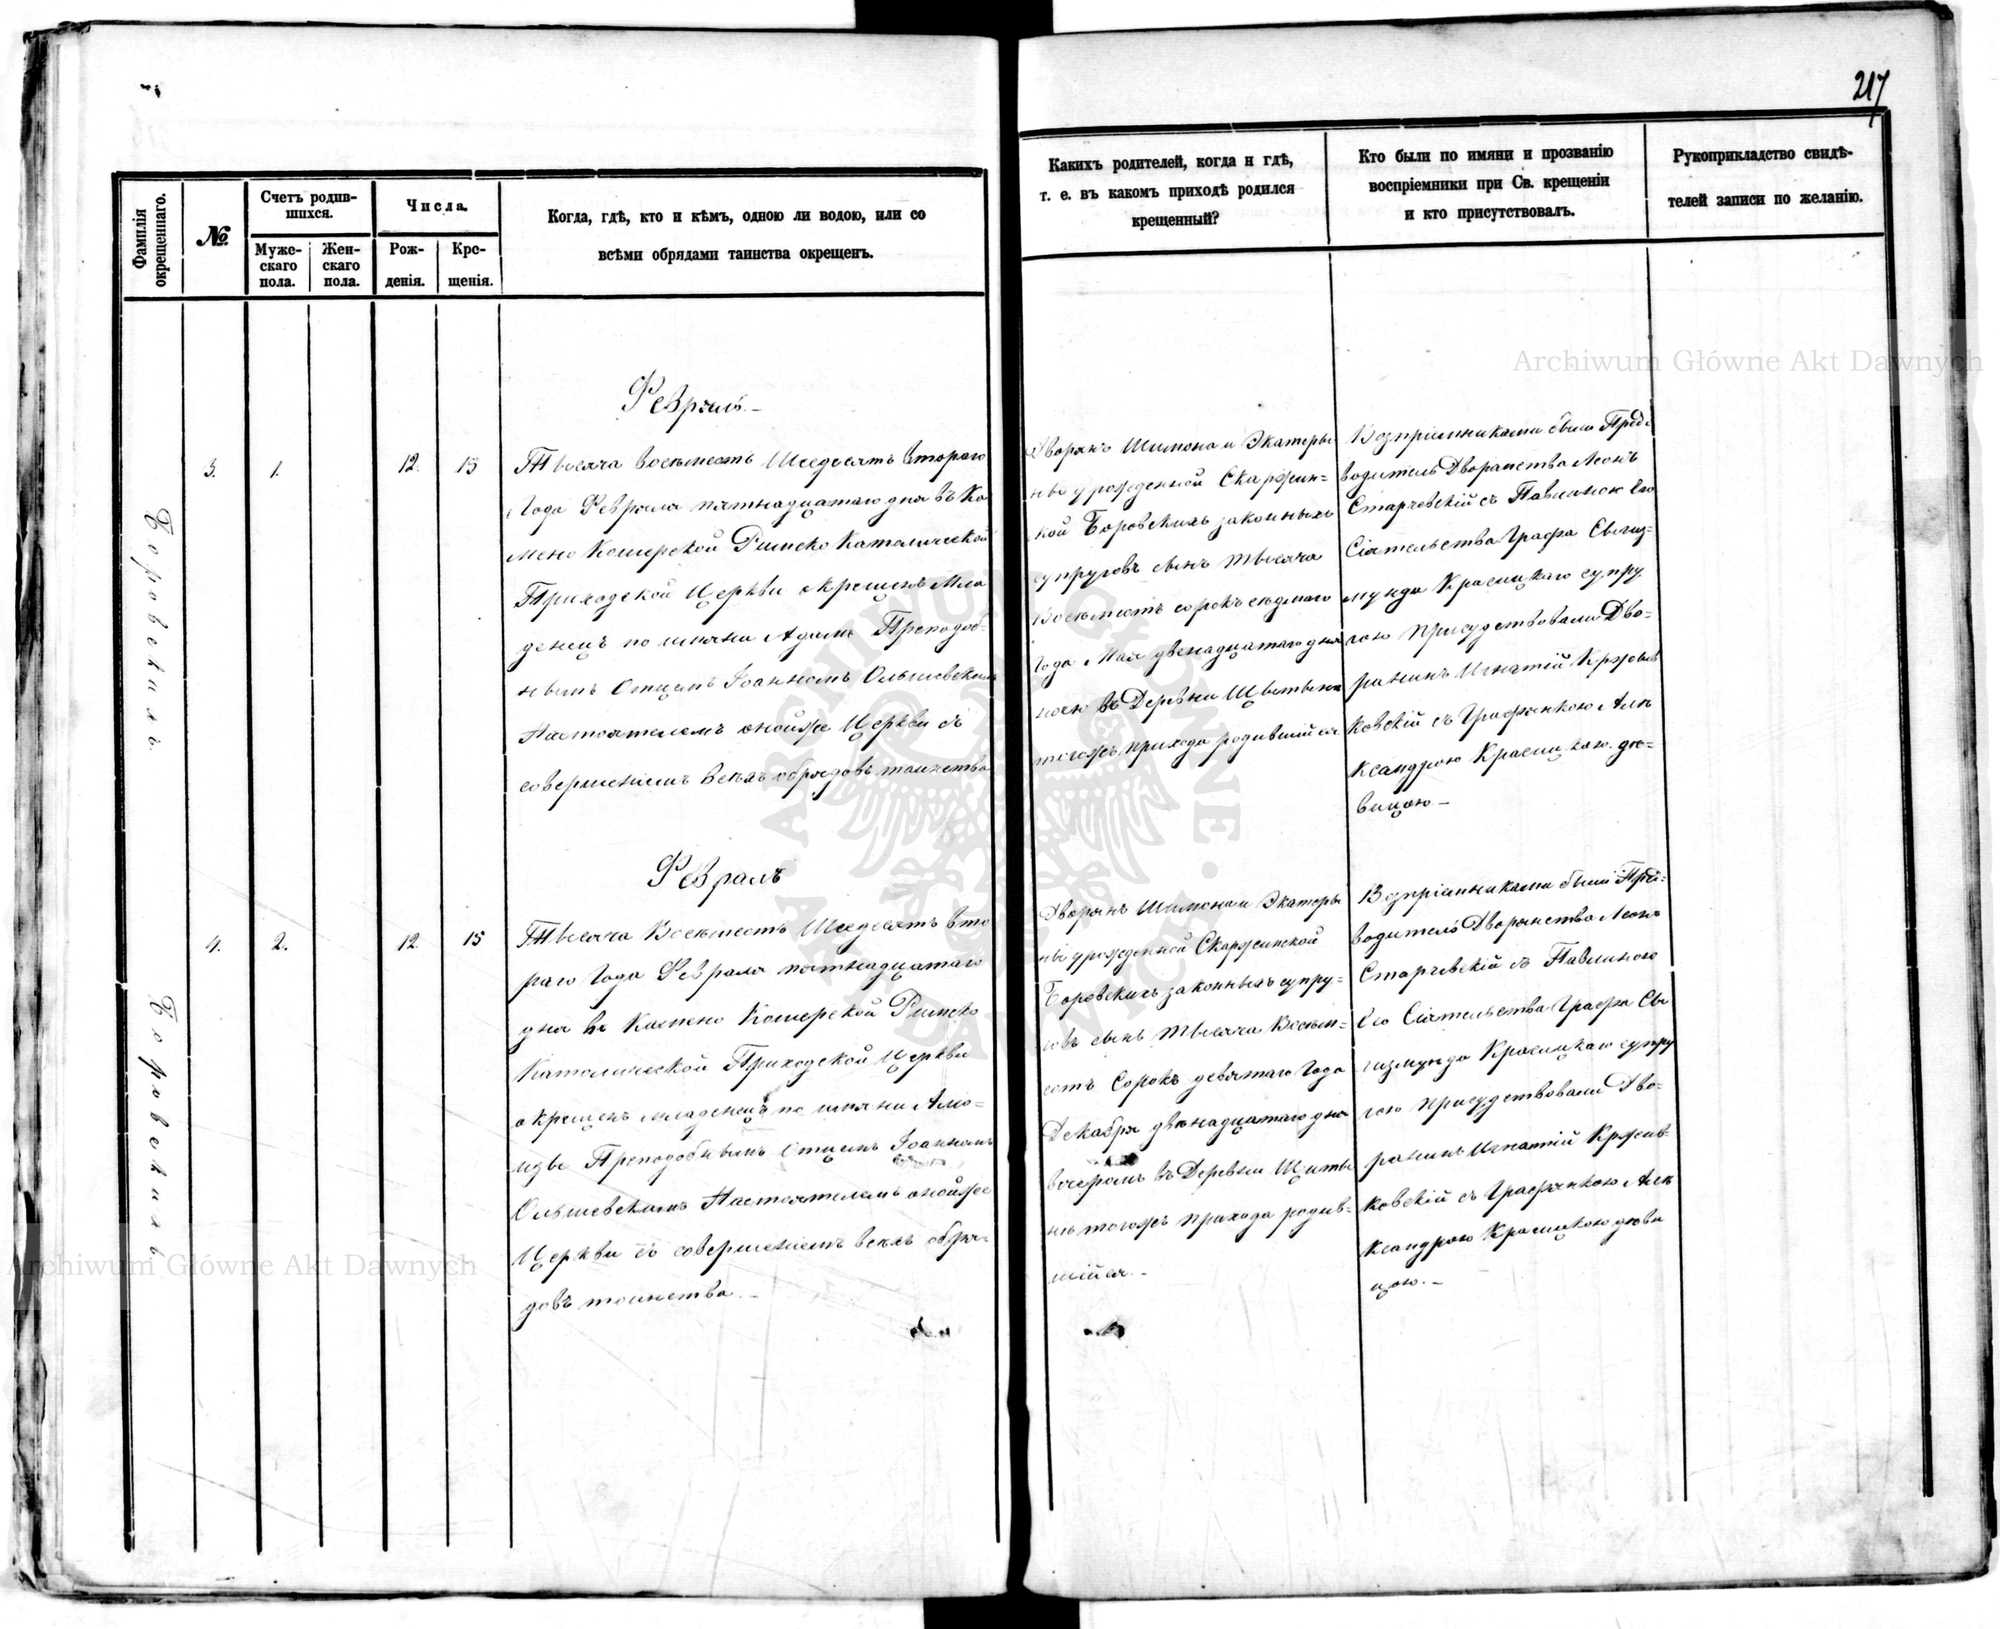 217
Фамилія окрещеннаго.
№.
Счетъ родив-
шихся.
Муже-
скаго
пола.
Жен-
скаго
пола.
Числа.
Рож-
денія.
Кре-
щенія.
Когда, гдѣ, кто и кѣмъ, одною ли водою, или со
всѣми обрядами таинства окрещенъ.
Какихъ родителей, когда и гдѣ,
т. е. въ какомъ приходѣ родился
крещенный?
Кто были по имяни и прозванію
воспріемники при Св. крещеніи
и кто присутствовалъ.
Рукоприкладство свидѣ-
телей записи по желанію.
Боровскихъ
3.
1.
12.
15
Февраль.-
Тысяча восемьсотъ Шесдесятъ втораго
Года Февраля пятнадцатаго дня въ Ка
мено Коширской Римско Католической
Приходской Церкви окрещенъ Мла
денецъ по имяни Адамъ Преподоб-
нымъ Отцемъ Іоанномъ Ольшевскимъ
Настоятелемъ онойже Церкви съ
совершеніемъ всехъ обрядовъ таинства
Дворянъ Шимона и Экатеры
ны урожденной Скаржин-
кой Боровскихъ законныхъ
супруговъ сынъ тысяча
Восемьсотъ сорокъ седмаго
Года Мая двенадцатаго дня
въ Деревни
тогожъ прихода родившійся
Возпріемниками были Пред-
водитель Дворанства Леонъ
Старчевскій съ Павлиною Его
Сіятельства Графа Сыгиз-
мунда Красицкаго супру
гою Присудствовали Дво-
ранинъ Игнатій Крживь
ковскій съ Графянкою Але
ксандрою Красицкою дѣ-
вицою -
Боровскихъ
4.
2.
12.
15
Февраль
Тысяча Восемьсотъ Шесдесятъ вто
раго Года Февраля пятнадцатаго
дня въ Камено Коширской Римско
Католической Приходской Церкви
окрещенъ младенецъ по имяни
Преподобнымъ Отцемъ Іоанномъ
Ольшевскимъ Настоятелемъ онойже
Церкви съ совершеніемъ всехъ обря-
довъ таинства. -
Дворянъ Шимона и Экатеры
ны урожденной Скаржинской
Боровскихъ законныхъ супру-
говъ сынъ тысяча Восемь-
сотъ Сорокъ девятаго Года
Декабря двѣнадцатаго дня
вечеромъ въ Деревни Щиты
нѣ тогожъ прихода родив-
шійся. -
Возпріемниками были Пред-
водитель Дворянства Леонъ
Старчевскій съ Павлиною
Его Сіятельства Графа Сы
гизмунда Красицкаго супру
гою присудствовали Дво-
ранинъ Игнатій Кржив-
ковскій съ Графянкою Але
ксандрою Красицкою дѣви
цою. -
Archiwum Główne Akt Dawnych
Archiwum Główne Akt Dawnych